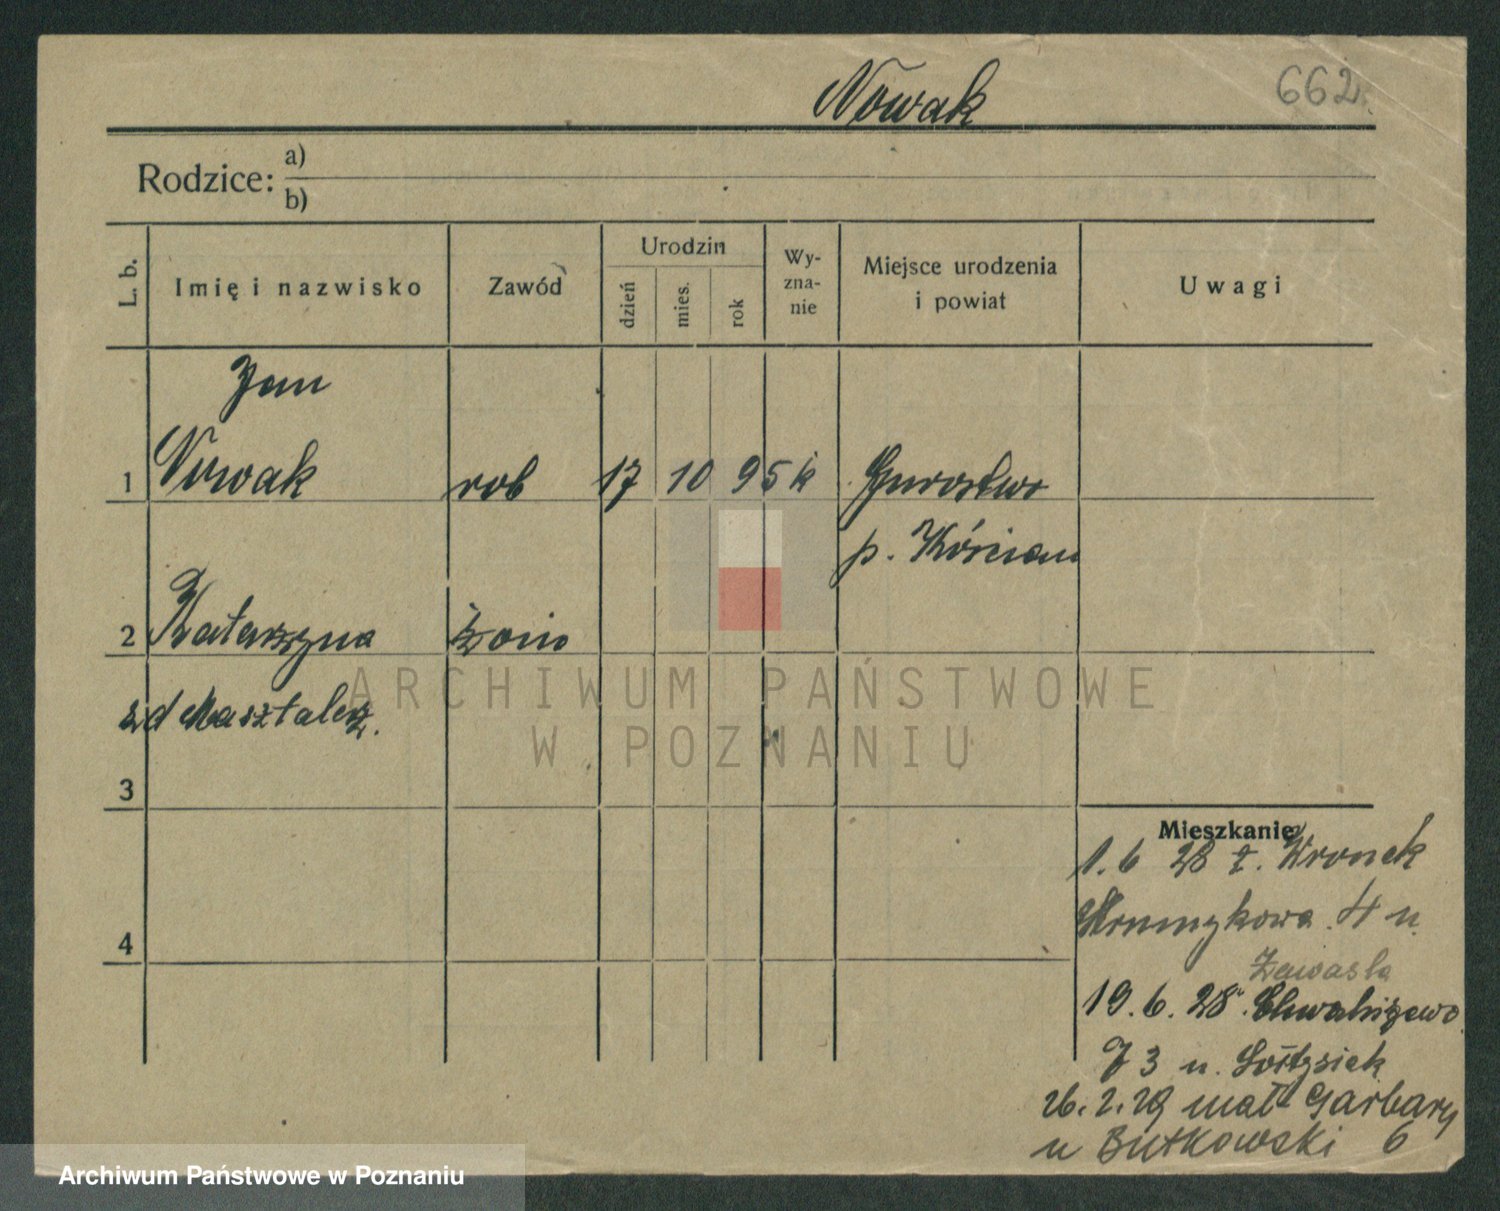 Nowak
662
Rodzice: a)
b)
L. b.
Imię i nazwisko
Zawód
Urodzin
dzień
mies.
rok
Wy-
zna-
nie
Miejsce urodzenia
i powiat
Uwagi
Jan
1 Nowak rob 17 10 95 k
p. Kościan
2 Katarzyna żona
zd Masztalerz.
3
4
Mieszkanie
1.6 28 z. Wronek
4 u
19.6.28. Chwaliszewo
73 u. Sołtysiak
26.2.29 Mał Garbary
u Butkowski 6
ARCHIWUM PAŃSTWOWE
W POZNANIU
Archiwum Państwowe w Poznaniu